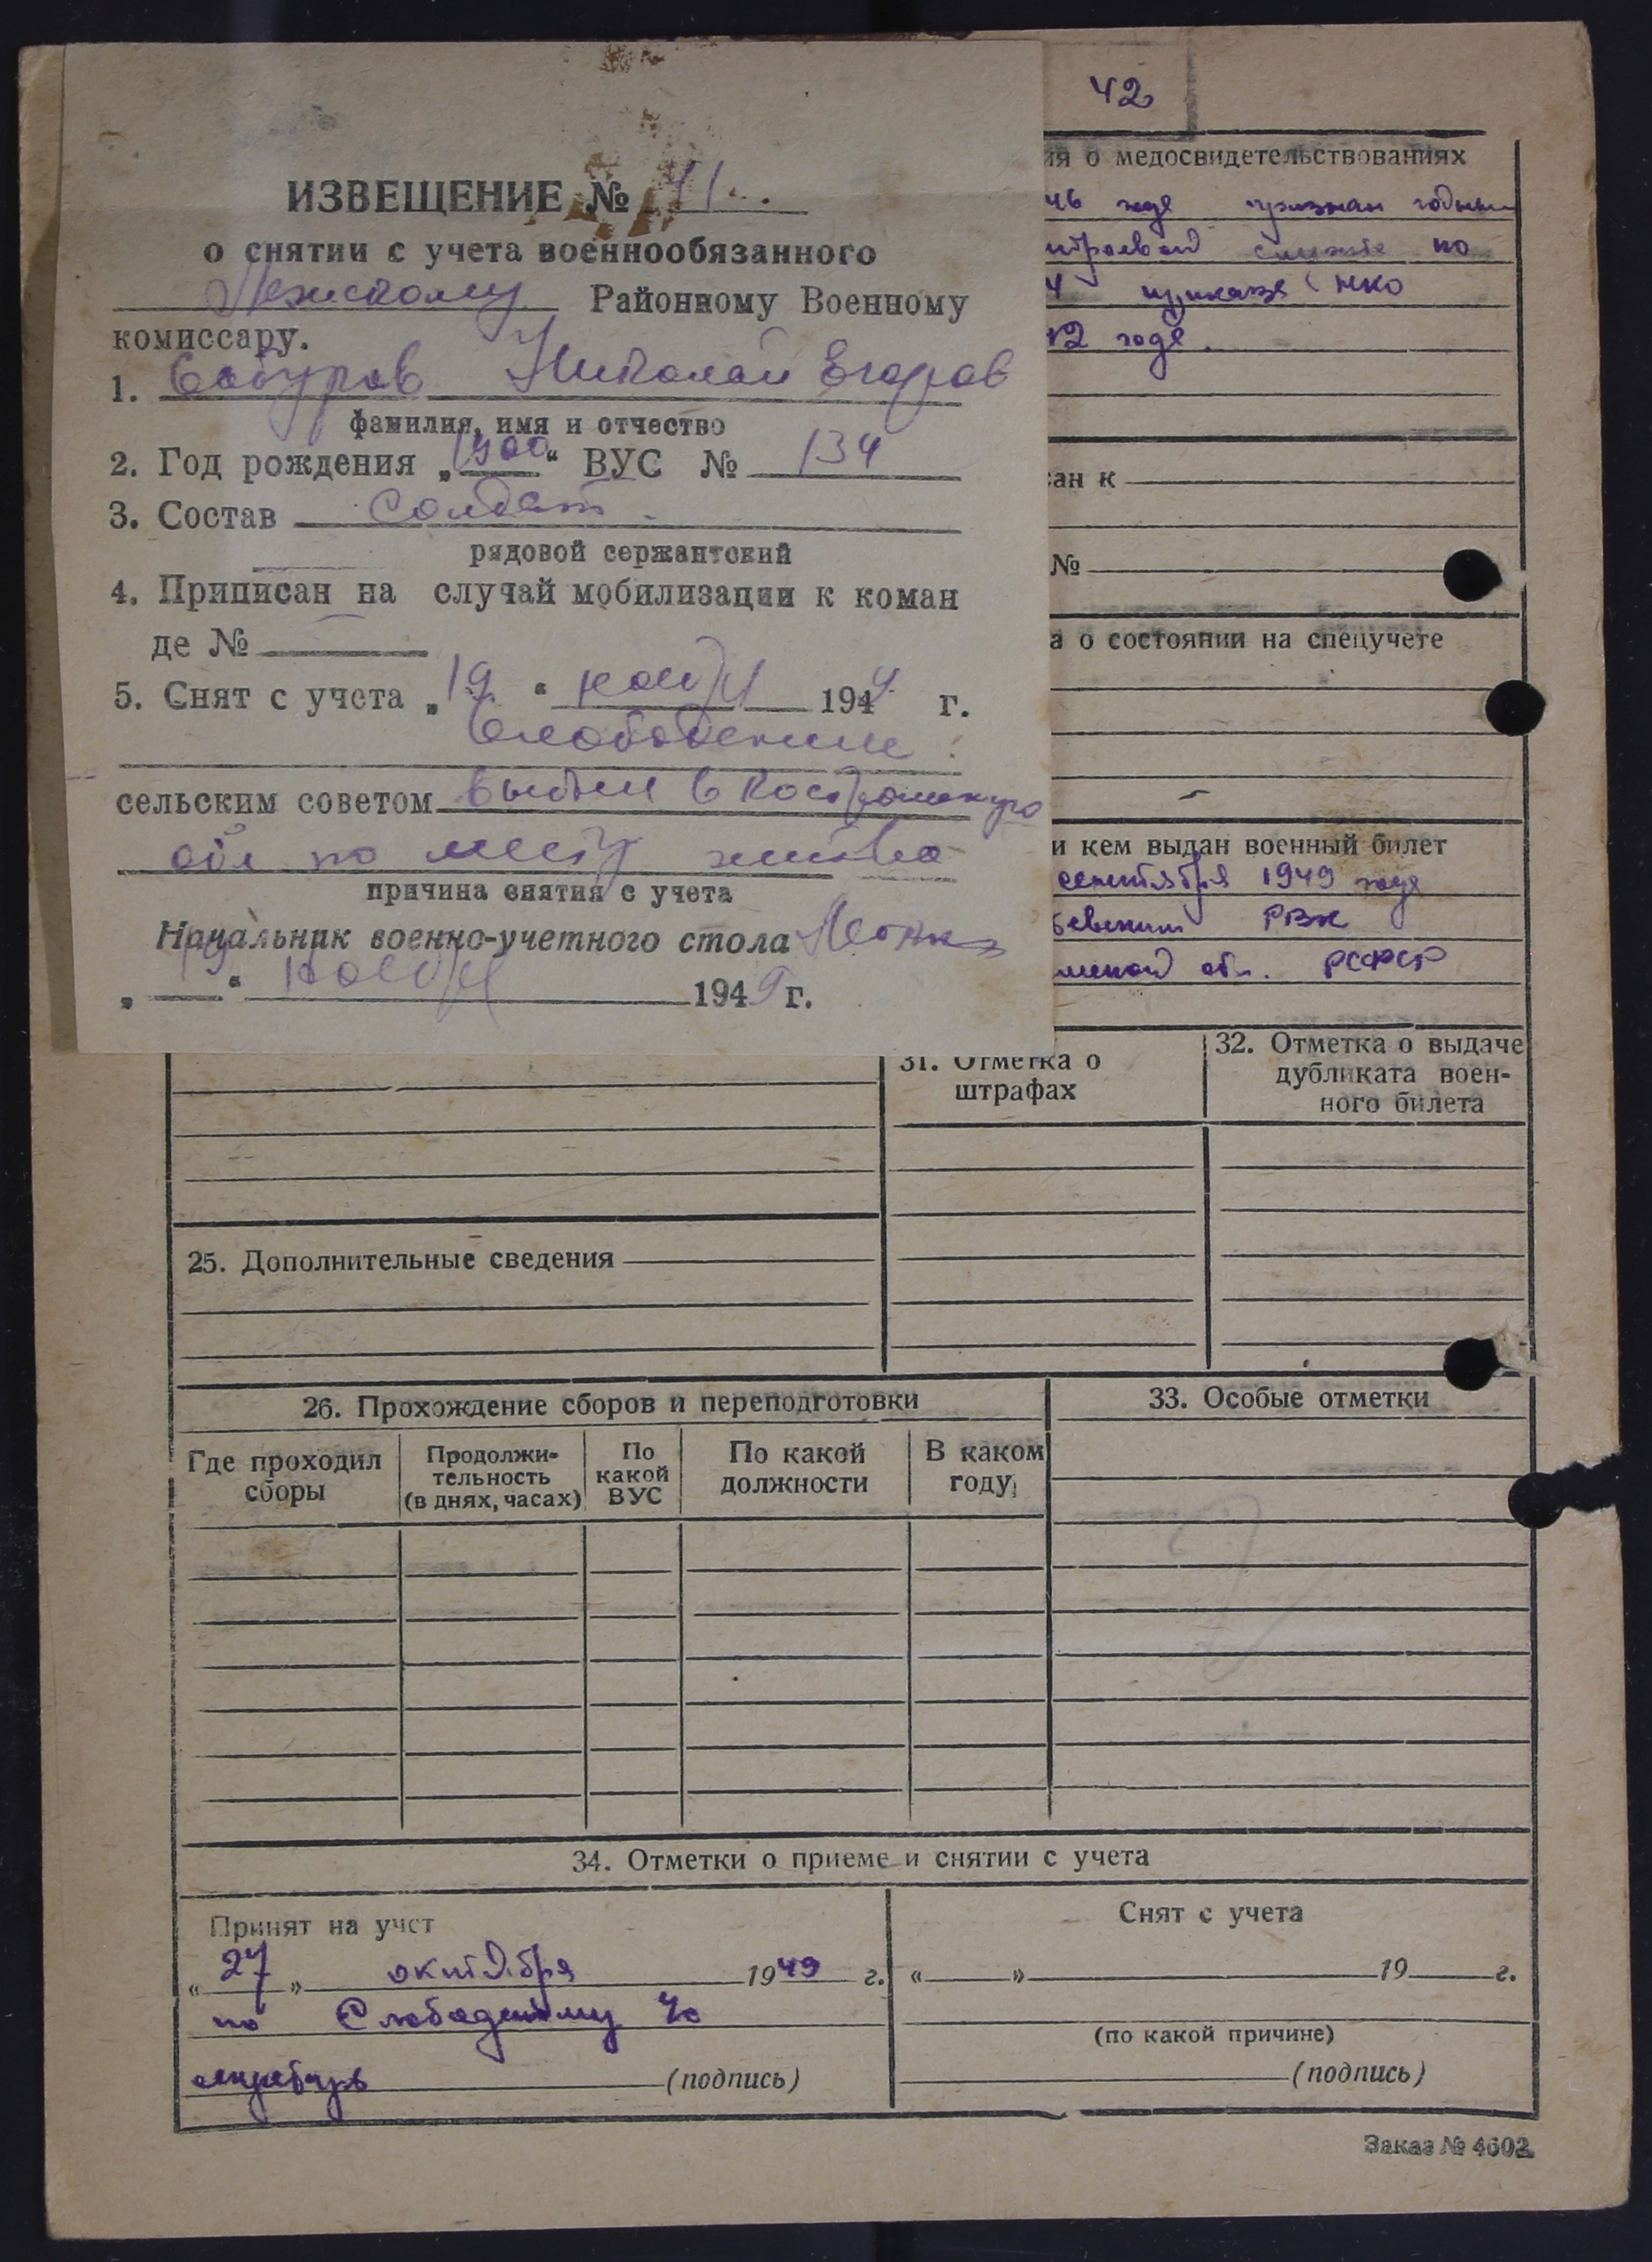 42
ИЗВЕЩЕНИЕ № 41
о снятии с учета военнообязанного
Районному Военному
комиссару.
1. Сабуров Николай Егоров
фамилия, имя и отчество
2. Год рождения „1900“ ВУС № 134
3. Состав солдат
рядовой сержантский
4. Приписан на случай мобилизации к коман
де №
5. Снят с учета „19“ ноября 194 г.
сельским советом выбыл в Костромскую
обл по месту жит-ва
причина снятия с учета
Начальник военно-учетного стола
„19“ ноября 1949 г.
ия о медосвидетельствованиях
46 году признан годным
строевой службе по
4 приказа НКО
42 года.
сан к
№
а о состоянии на спецучете
и кем выдан военный билет
сентября 1949 года
РВК
обл. РСФСР
31. Отметка о
штрафах
32. Отметка о выдаче
дубликата воен-
ного билета
25. Дополнительные сведения
26. Прохождение сборов и переподготовки
33. Особые отметки
Где проходил
сборы
Продолжи-
тельность
(в днях, часах)
По
какой
ВУС
По какой
должности
В каком
году
34. Отметки о приеме и снятии с учета
Принят на учет
«27» октября 1949 г.
по Слободскому
(подпись)
Снят с учета
«» 19 г.
(по какой причине)
(подпись)
Заказ № 4602